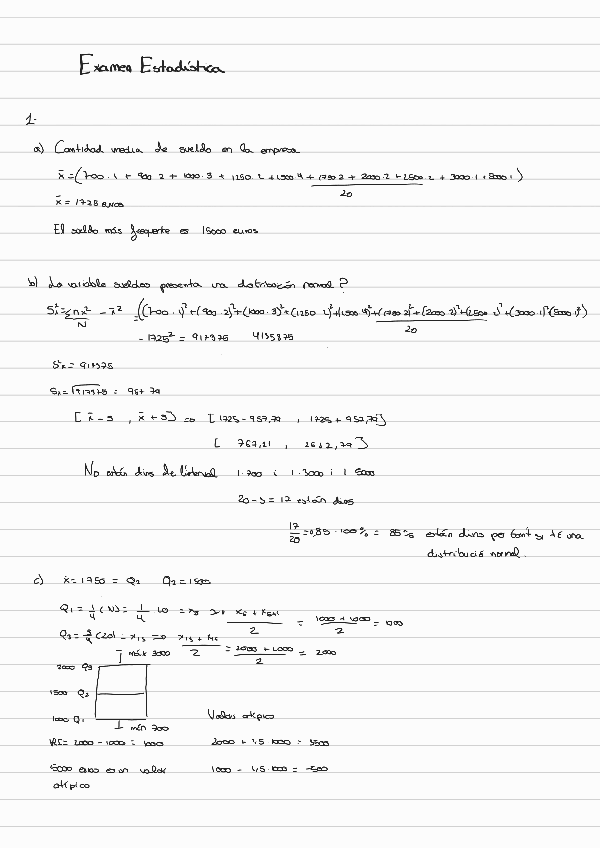 Examen Estadística
1.
a) Cantidad media de sueldo en la empresa
x̄ = (700·1 + 900·2 + 1000·3 + 1250·2 + 1500·4 + 1750·2 + 2000·2 + 2500·2 + 3000·1 + 5000·1)
20
x̄ = 1728 euros
El sueldo más frequente es 15000 euros
b) La variable sueldos presenta una distribución normal?
S²ₓ = Σnx² - x̄² = ((700·1)² + (900·2)² + (1000·3)² + (1250·2)² + (1500·4)² + (1750·2)² + (2000·2)² + (2500·2)² + (3000·1)² (5000·1)²)
N 20
- 1725² = 917375 4135875
S²ₓ = 917375
Sₓ = √917375 = 957,79
[x̄ - s , x̄ + s] => [1725 - 957,79 , 1725 + 957,79]
[767,21 , 2682,79]
No están dins de l'interval 1·700 i 1·3000 i 1 5000
20 - 3 = 17 están dins
17/20 = 0,85 · 100% = 85% están dins per tant si té una
distribució normal.
c) x̄ = 1750 = Q₂ Q₂ = 1500
Q₁ = 1/4 (N) = 1/4 20 = x₅ => x₅ + x₅₊₁ / 2 = 1000 + 1000 / 2 = 1000
Q₃ = 3/4 (20) = x₁₅ => x₁₅ + x₁₆ / 2 = 2000 + 2000 / 2 = 2000
máx 3000
2000 Q₃
1500 Q₂
1000 Q₁
mín 700
Valor atípico
RI = 2000 - 1000 = 1000 2000 + 1,5·1000 = 3500
5000 euros es un valor 1000 - 1,5·1000 = -500
atípico